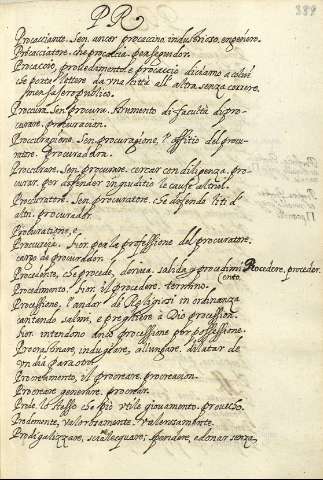 PR
389
Procacciante. Sen. ancor procaccino industrioso, engeñero.
Procacciatore. che procaccia. perseguidor.
Procaccio, provedimento, e procaccio diciamo a colui
che porta lettere da una città all' altra senza correre.
mensajero publico.
Procura. Sen. procura. strumento di facultà di pro-
curare. procuracion.
Procuragione. Sen. procuragione, l' offitio del procu-
ratore. procuradora.
Procurare. Sen. procurare. cercar con diligenza. pro-
curar. per difender in giuditio le cause altrui.
Procuratore. Sen. procuratore. che difende liti d'
altri. procurador.
Procuratione, e
Procureria. Fior. per la professione del procuratore.
cargo de procurador.
Procedente, che procede, deriva. salida y procedimi
ento. Procedere, proceder.
Procedimento. Fior. il procedere. termino.
Processione, l' andar di Religiosi in ordinanza
cantando salmi, e preghiere à Dio. procession.
Fior. intendono anco processione per possessione.
Procrastinare, indugiare, allungare. dilatar de
un dia para otro.
Procreamento, il procreare. procreacion.
Procreare generare. procrear.
Prode. lo stesso che pro utile giovamento. provecho.
Prodemente, valorosamente. valerosamente.
Prodigalizzare, scialacquare, spendere, e donar senza